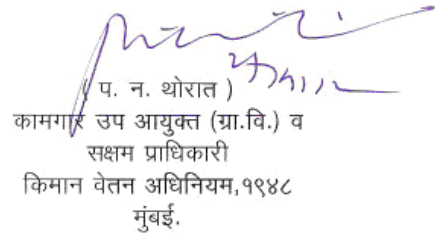 ( प. न. थोरात )
कामगार उप आयुक्त (ग्रा.वि.) व
सक्षम प्राधिकारी
किमान वेतन अधिनियम,१९४८
मुंबई.